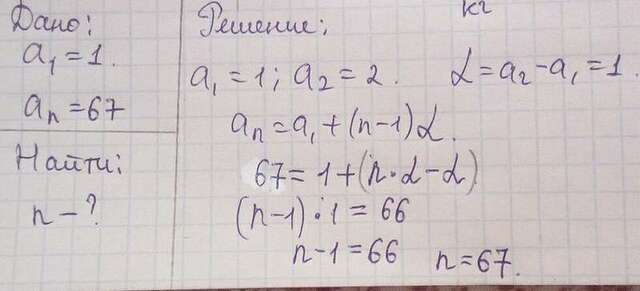 Дано:
a₁ = 1.
aₙ = 67
Найти:
n - ?
кг
Решение:
a₁ = 1; a₂ = 2. d = a₂ - a₁ = 1.
aₙ = a₁ + (n-1)d.
67 = 1 + (n·d - d)
(n-1)·1 = 66
n-1 = 66 n = 67.